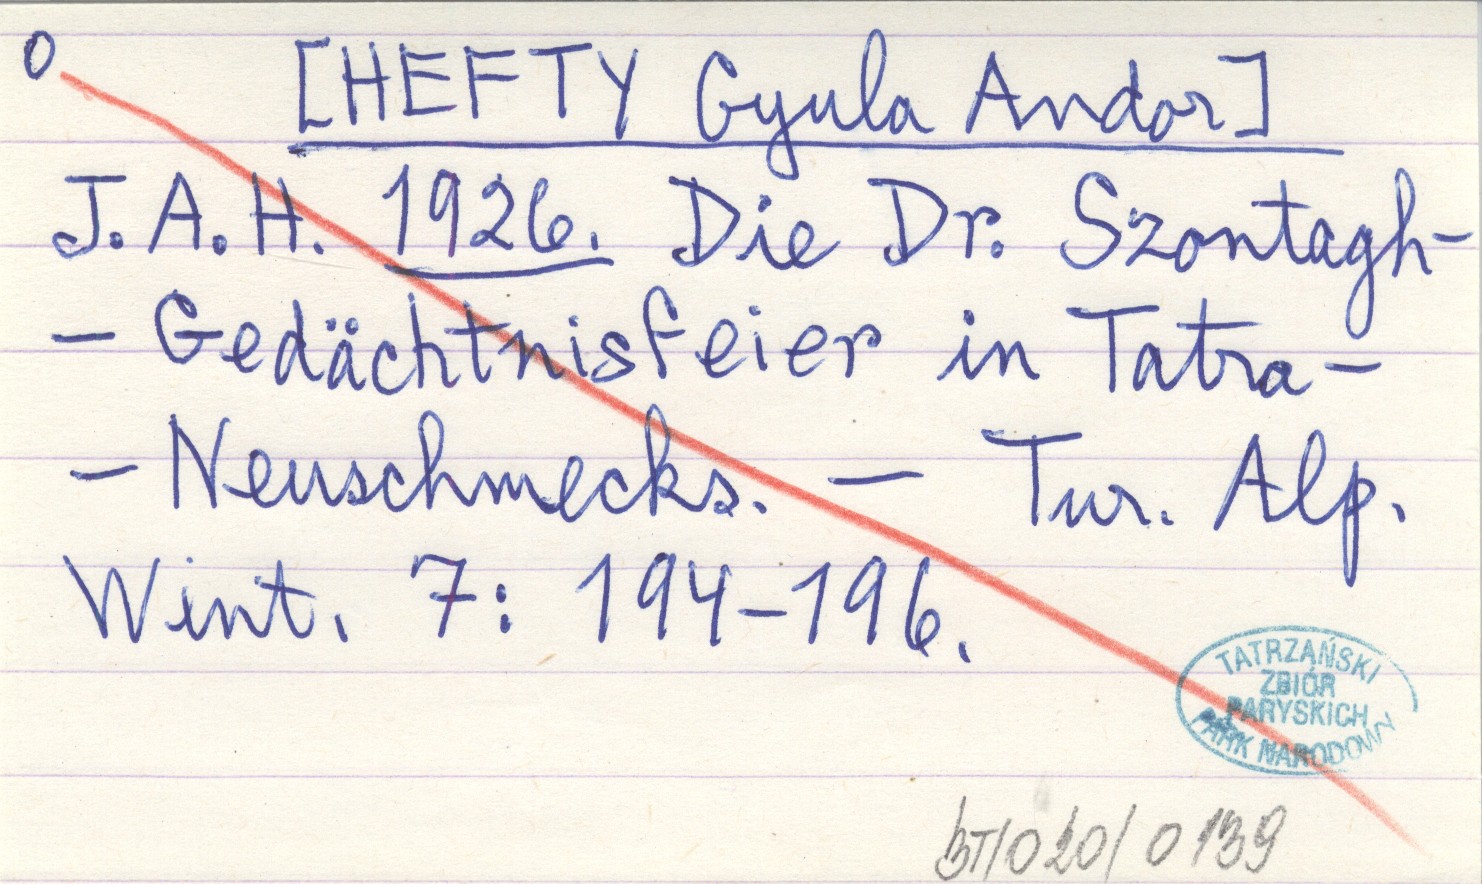 0 [HEFTY Gyula Andor]
J. A. H. 1926. Die Dr. Szontagh-
- Gedächtnisfeier in Tatra -
- Neuschmecks. - Tur. Alp.
Wint. 7: 194-196.
TATRZAŃSKI
ZBIÓR
PARYSKICH
PARK NARODOWY
BT/020/0139